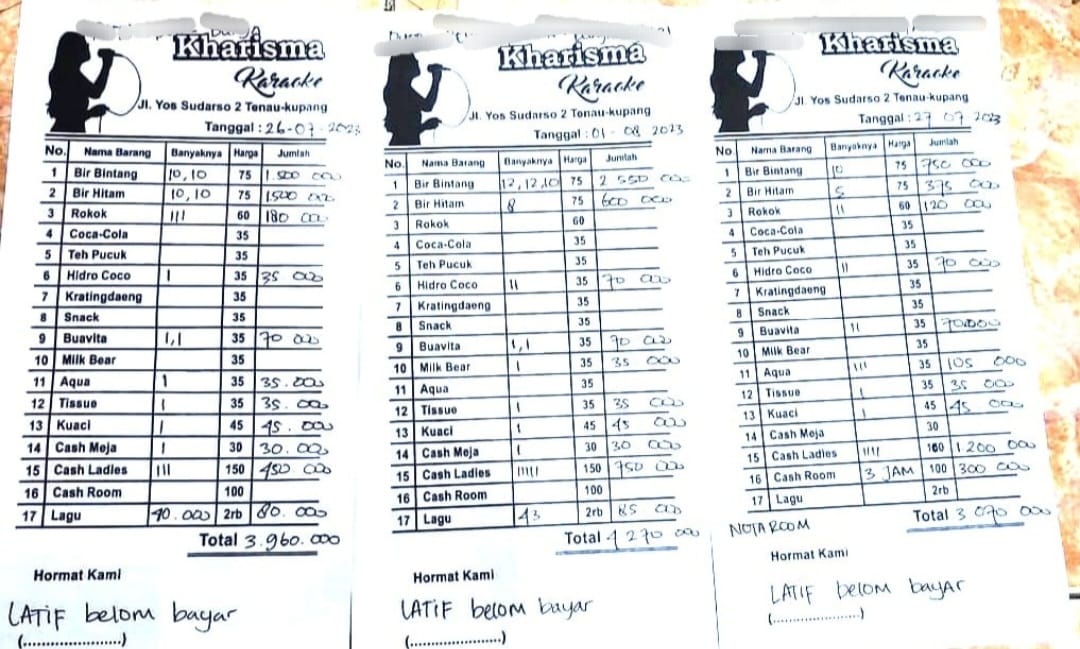 Kharisma
Karaoke
Jl. Yos Sudarso 2 Tenau-kupang
Tanggal : 26-07-2023
No. Nama Barang Banyaknya Harga Jumlah
1 Bir Bintang 10,10 75 1.500 000
2 Bir Hitam 10,10 75 1500 000
3 Rokok III 60 180 000
4 Coca-Cola 35
5 Teh Pucuk 35
6 Hidro Coco I 35 35 000
7 Kratingdaeng 35
8 Snack 35
9 Buavita 1,1 35 70 000
10 Milk Bear 35
11 Aqua 1 35 35.000
12 Tissue I 35 35.000
13 Kuaci I 45 45.000
14 Cash Meja I 30 30.000
15 Cash Ladies III 150 450 000
16 Cash Room 100
17 Lagu 40.000 2rb 80.000
Total 3.960.000
Hormat Kami
LATIF belom bayar
(........................)
Kharisma
Karaoke
Jl. Yos Sudarso 2 Tenau-kupang
Tanggal : 01-08 2023
No. Nama Barang Banyaknya Harga Jumlah
1 Bir Bintang 12,12,10 75 2 550 000
2 Bir Hitam 8 75 600 000
3 Rokok 60
4 Coca-Cola 35
5 Teh Pucuk 35
6 Hidro Coco II 35 70 000
7 Kratingdaeng 35
8 Snack 35
9 Buavita 1,1 35 70 000
10 Milk Bear I 35 35 000
11 Aqua 35
12 Tissue I 35 35 000
13 Kuaci I 45 45 000
14 Cash Meja I 30 30 000
15 Cash Ladies IIIII 150 750 000
16 Cash Room 100
17 Lagu 43 2rb 85 000
Total 4 270 000
Hormat Kami
LATIF belom bayar
(......................)
Kharisma
Karaoke
Jl. Yos Sudarso 2 Tenau-kupang
Tanggal : 27 07 2023
No Nama Barang Banyaknya Harga Jumlah
1 Bir Bintang 10 75 750 000
2 Bir Hitam 5 75 375 000
3 Rokok II 60 120 000
4 Coca-Cola 35
5 Teh Pucuk 35
6 Hidro Coco II 35 70 000
7 Kratingdaeng 35
8 Snack 35
9 Buavita II 35 70.000
10 Milk Bear 35
11 Aqua III 35 105 000
12 Tissue I 35 35 000
13 Kuaci I 45 45 000
14 Cash Meja 30
15 Cash Ladies IIII 1 200 000
16 Cash Room 3 JAM 100 300 000
17 Lagu 2rb
NOTA ROOM
Total 3 070 000
Hormat Kami
LATIF belom bayAr
(......................)